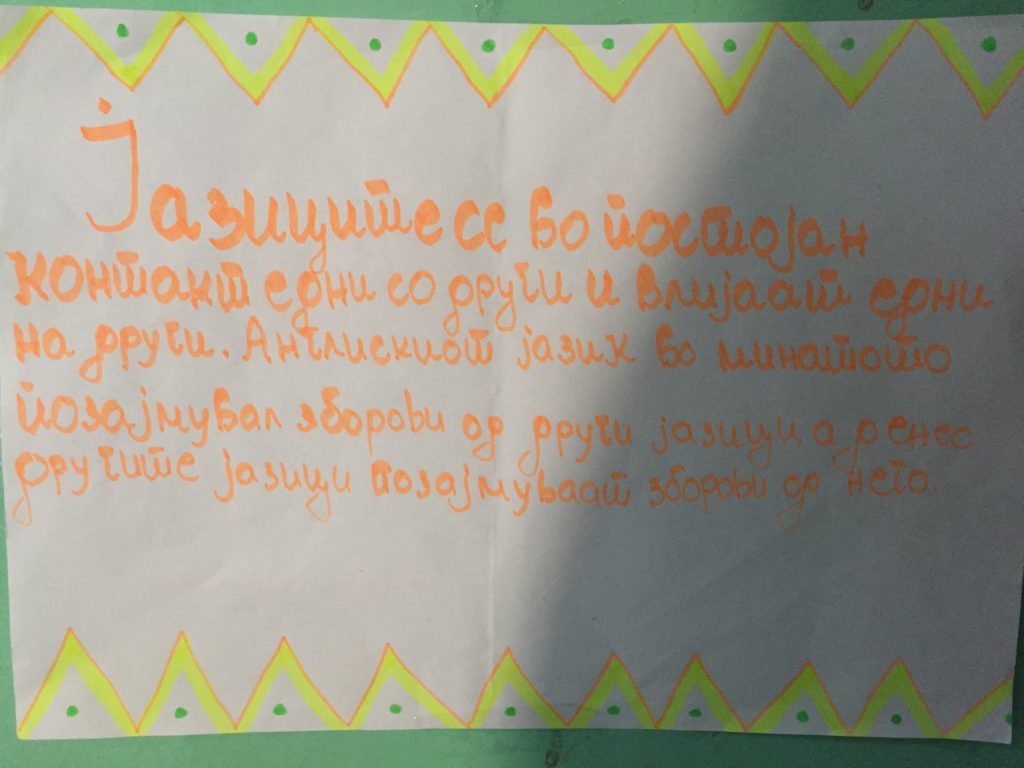 Јазиците се во постојан
контакт едни со други и влијаат едни
на други. Англискиот јазик во минатото
позајмувал зборови од други јазици, а денес
другите јазици позајмуваат зборови од него.